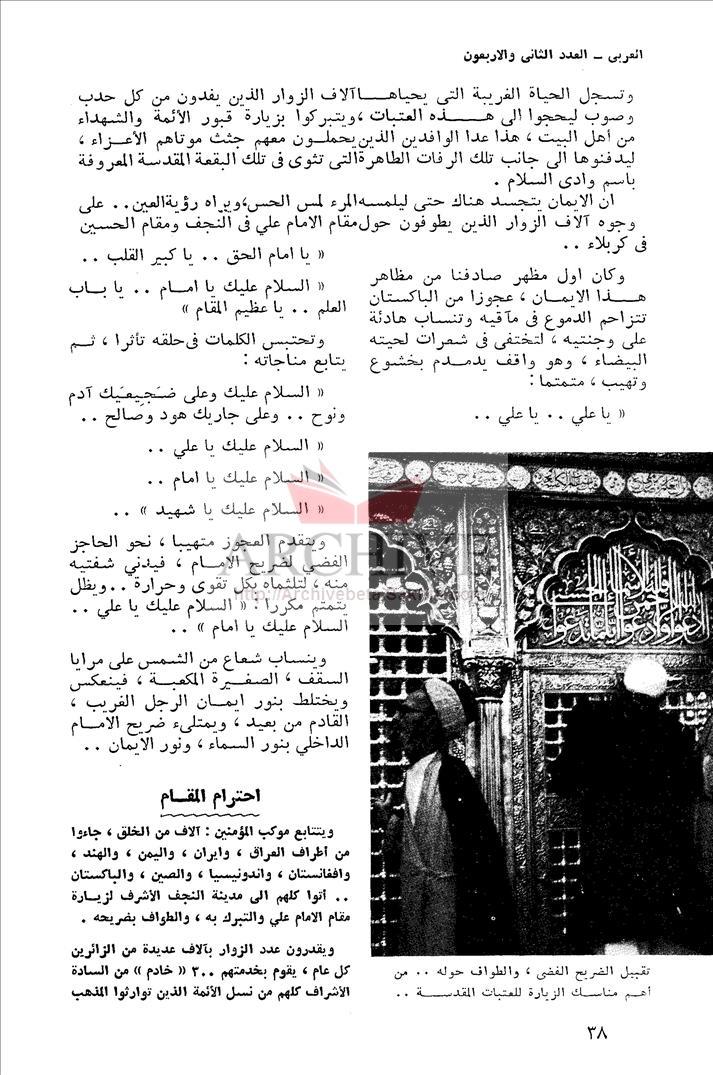 العربى ــ العدد الثانى والاربعون
وتسجل الحياة الغريبة التى يحياهـــا آلاف الزوار الذين يفدون من كل حدب
وصوب ليحجوا الى هـــذه العتبات ، ويتبركوا بزيارة قبور الأئمة والشهداء
من أهل البيت ، هذا عدا الوافدين الذين يحملون معهم جثث موتاهم الأعـزاء ،
ليدفنوها الى جانب تلك الرفات الطاهرة التى تثوى فى تلك البقعة المقدسة المعروفة
باسم وادى السلام .
ان الايمان يتجسد هناك حتى ليلمسه المرء لمس الحس ، ويراه رؤية العين .. على
وجوه آلاف الزوار الذين يطوفون حول مقام الامام علي فى النجف ومقام الحسين
فى كربلاء ..
وكان اول مظهر صادفنا من مظاهر
هـــذا الايمـان ، عجوزا من الباكستان
تتزاحم الدموع فى مآقيه وتنساب هادئة
على وجنتيه ، لتختفى فى شعرات لحيته
البيضاء ، وهو واقف يدمـدم بخشوع
وتهيب ، متمتما :
« يا علي .. يا علي ..
« يا امام الحق .. يا كبير القلب ..
« السلام عليك يا امـام .. يا بـاب
العلم .. يا عظيم المقام »
وتحتبس الكلمات فى حلقه تأثرا ، ثـم
يتابع مناجاته :
« السلام عليك وعلى ضَجيعَيك آدم
ونوح .. وعلى جاريك هود وصالح ..
« السلام عليك يا علي ..
« السلام عليك يا امام ..
« السلام عليك يا شهيد » ..
ويتقدم العجوز متهيبا ، نحو الحاجز
الفضي لضريح الامـام ، فيدني شفتيه
منه ، لتلثماه بكل تقوى وحرارة .. ويظل
يتمتم مكررا : « السلام عليك يا علي ..
السلام عليك يا امام » ..
وينساب شعاع من الشمس على مرايا
السقف ، الصغيرة المكعبة ، فينعكس
ويختلط بنور ايمـان الرجل الغريب ،
القادم من بعيد ، ويمتلىء ضريح الامـام
الداخلي بنور السماء ، ونور الايمان ..
احترام المقـام
ويتتابع موكب المؤمنين : آلاف من الخلق ، جاءوا
من أطراف العراق ، وايران ، واليمن ، والهند ،
وافغانستان ، واندونيسيا ، والصين ، والباكستان
.. أتوا كلهم الى مدينة النجف الأشرف لزيـارة
مقام الامام علي والتبرك به ، والطواف بضريحه .
ويقدرون عدد الزوار بآلاف عديدة من الزائرين
كل عام ، يقوم بخدمتهم ٢٠٠ « خادم » من السادة
الأشراف كلهم من نسل الأئمة الذين توارثوا المذهب
تقبيل الضريح الفضى ، والطواف حوله .. من
أهم مناسـك الزيارة للعتبات المقدسـة ..
٣٨
ARCHIVE